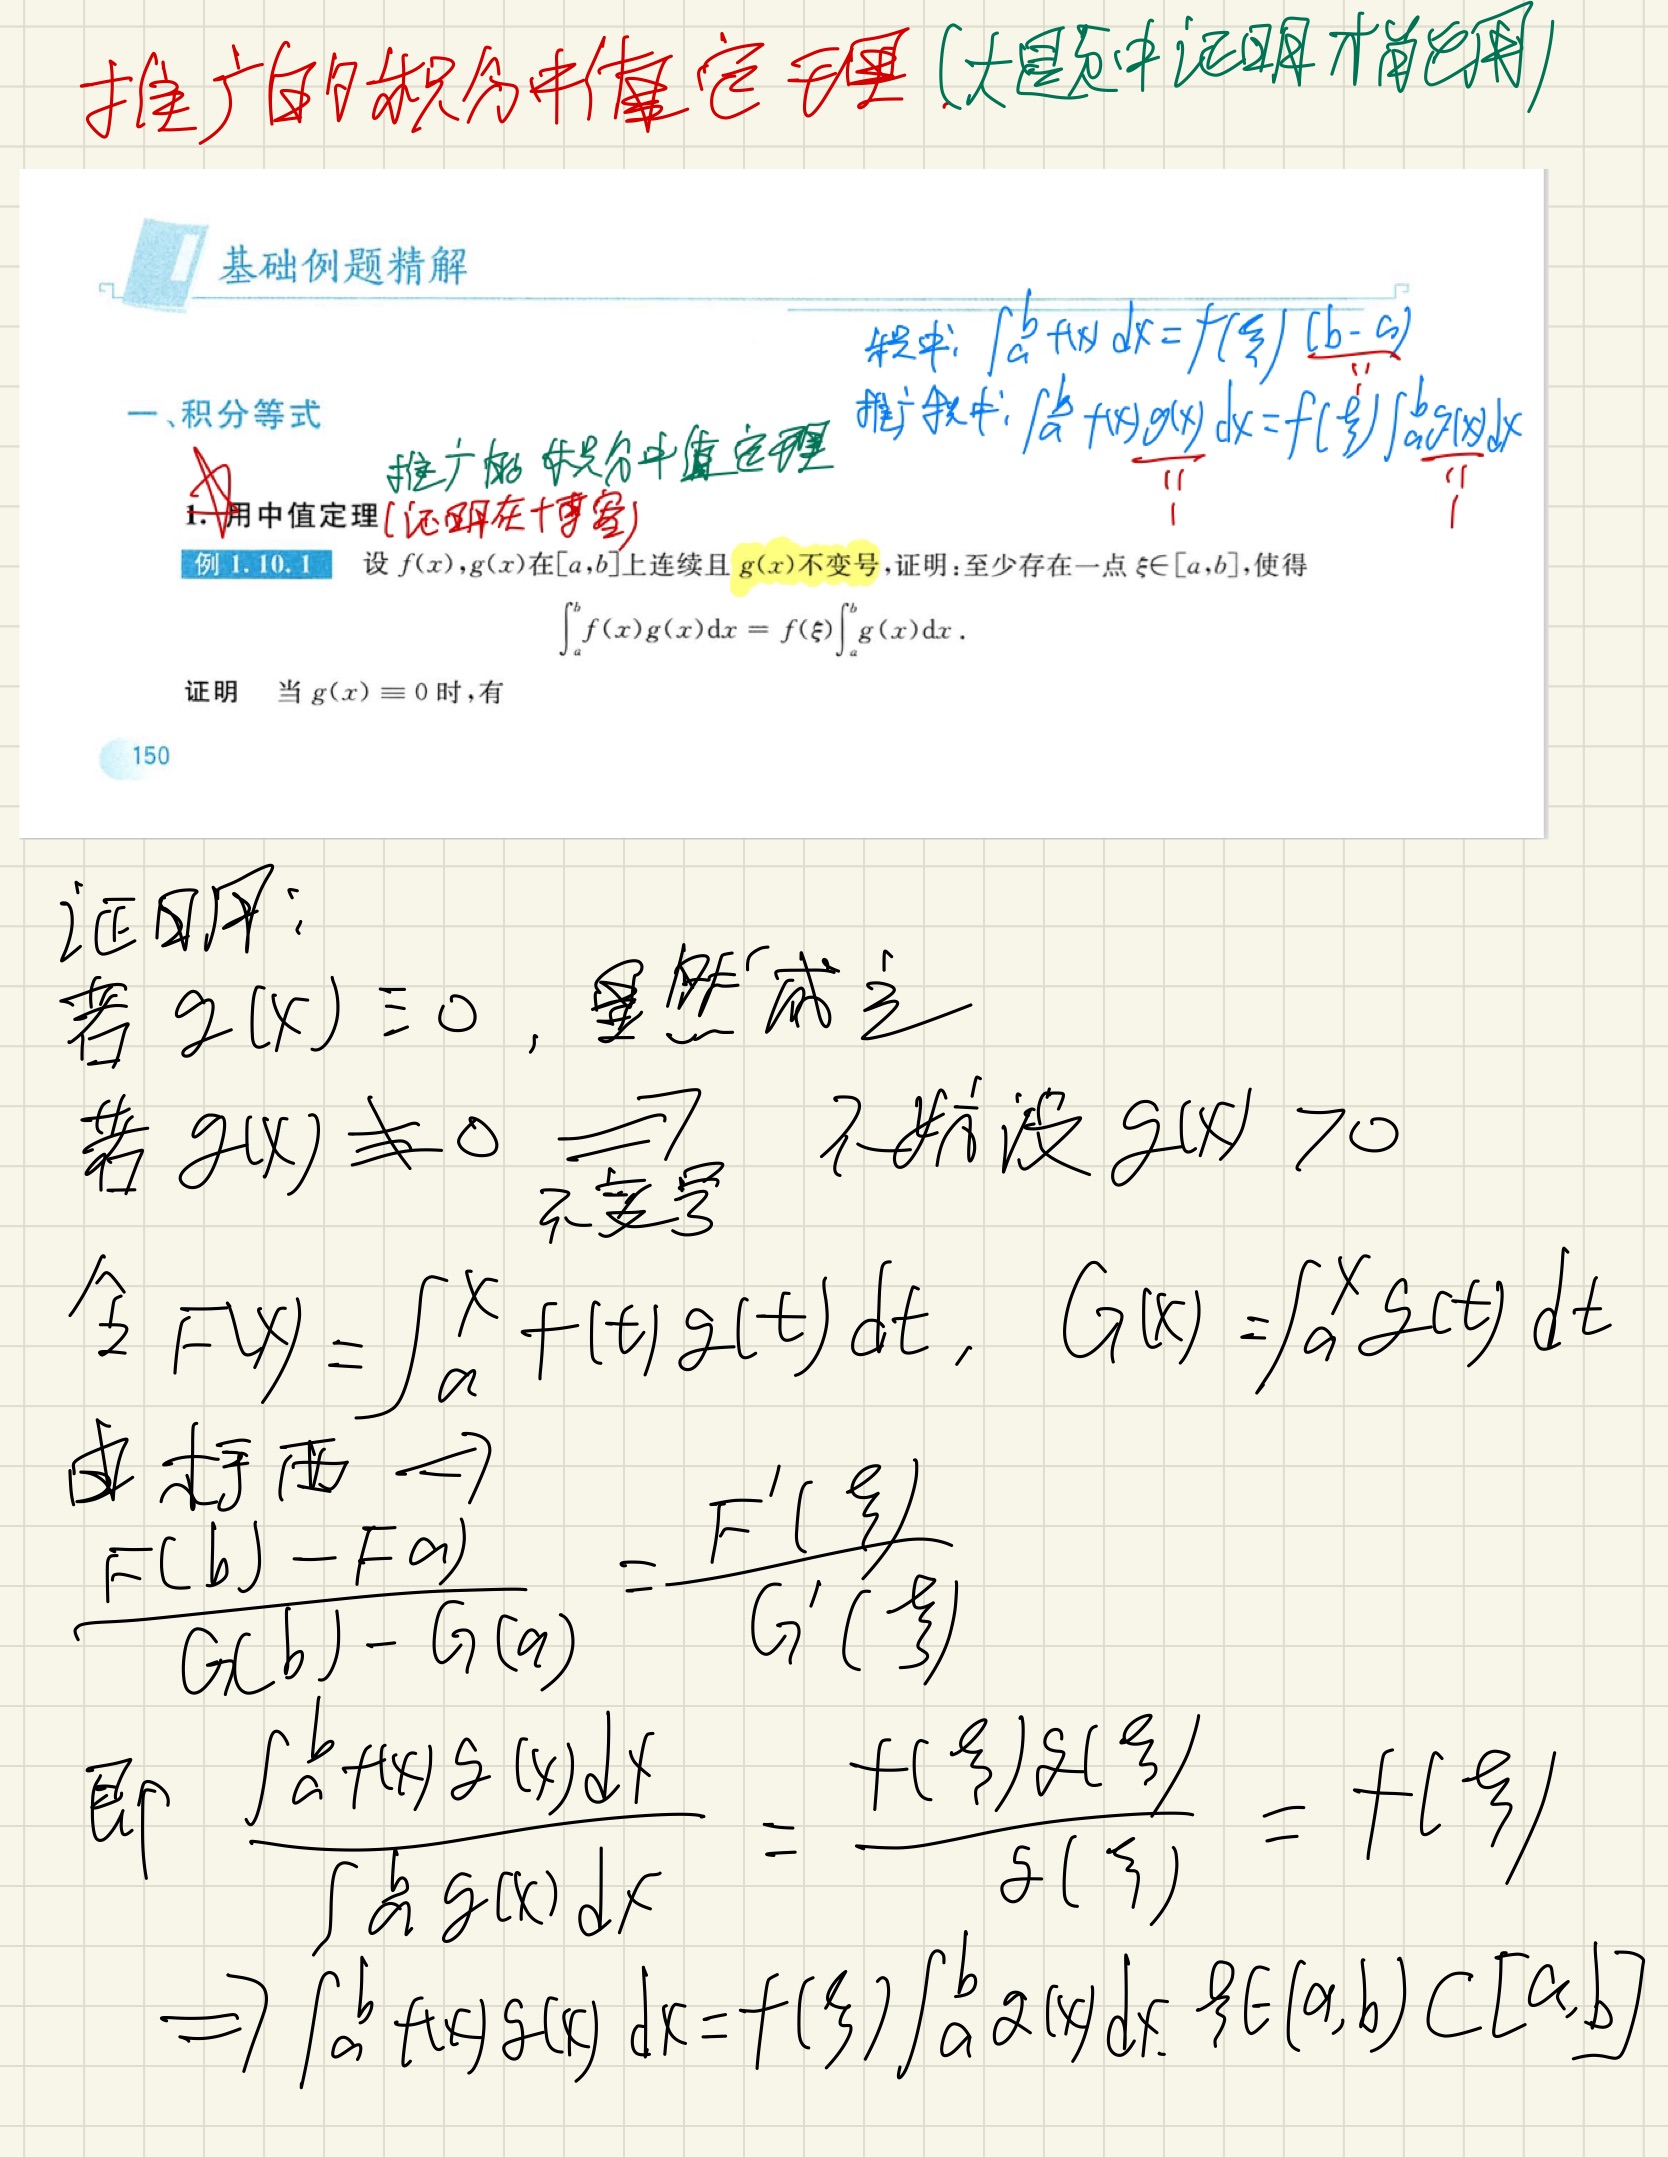 推广的积分中值定理(大题中证明才能用)
基础例题精解
积中: ∫_a^b f(x) dx = f(ξ) (b-a)
一、积分等式
推广积中: ∫_a^b f(x) g(x) dx = f(ξ) ∫_a^b g(x) dx
推广的积分中值定理
1. 用中值定理(证明在+博客)
例 1.10.1 设 f(x),g(x)在[a,b]上连续且 g(x)不变号,证明:至少存在一点 ξ∈[a,b],使得
∫_a^b f(x)g(x)dx = f(ξ)∫_a^b g(x)dx.
证明 当 g(x)≡0 时,有
150
证明:
若 g(x) ≡ 0, 显然成立
若 g(x) ≢ 0 ⟹ 不变号 不妨设 g(x) > 0
令 F(x) = ∫_a^x f(t) g(t) dt, G(x) = ∫_a^x g(t) dt
由柯西 →
F(b) - F(a) / G(b) - G(a) = F'(ξ) / G'(ξ)
即 ∫_a^b f(x) g(x) dx / ∫_a^b g(x) dx = f(ξ) g(ξ) / g(ξ) = f(ξ)
⟹ ∫_a^b f(x) g(x) dx = f(ξ) ∫_a^b g(x) dx. ξ∈(a,b) ⊂ [a,b]